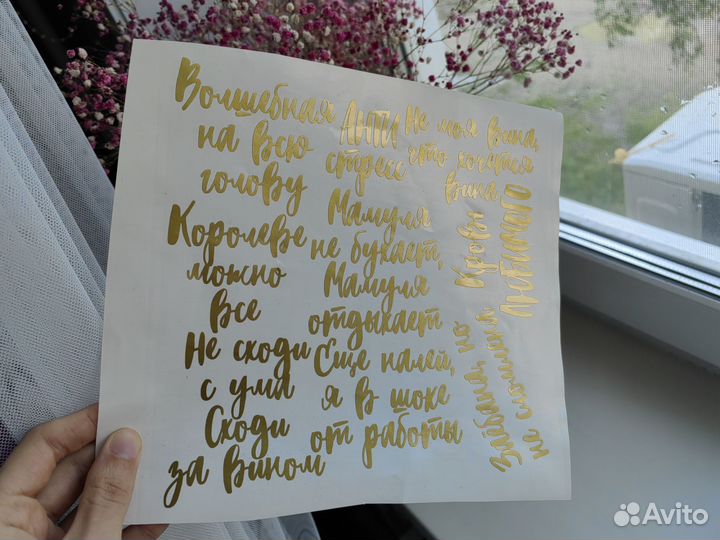 Волшебная
на всю
голову
Королеве
можно
все
Не сходи
с ума
Сходи
за вином
АНТИ
стресс
Мамуля
не бухает,
Мамуля
отдыхает
Еще налей,
я в шоке
от работы
Не моя вина,
что хочется
вина
Кровь
любимого
Заёбана, но
не сломлена
Avito